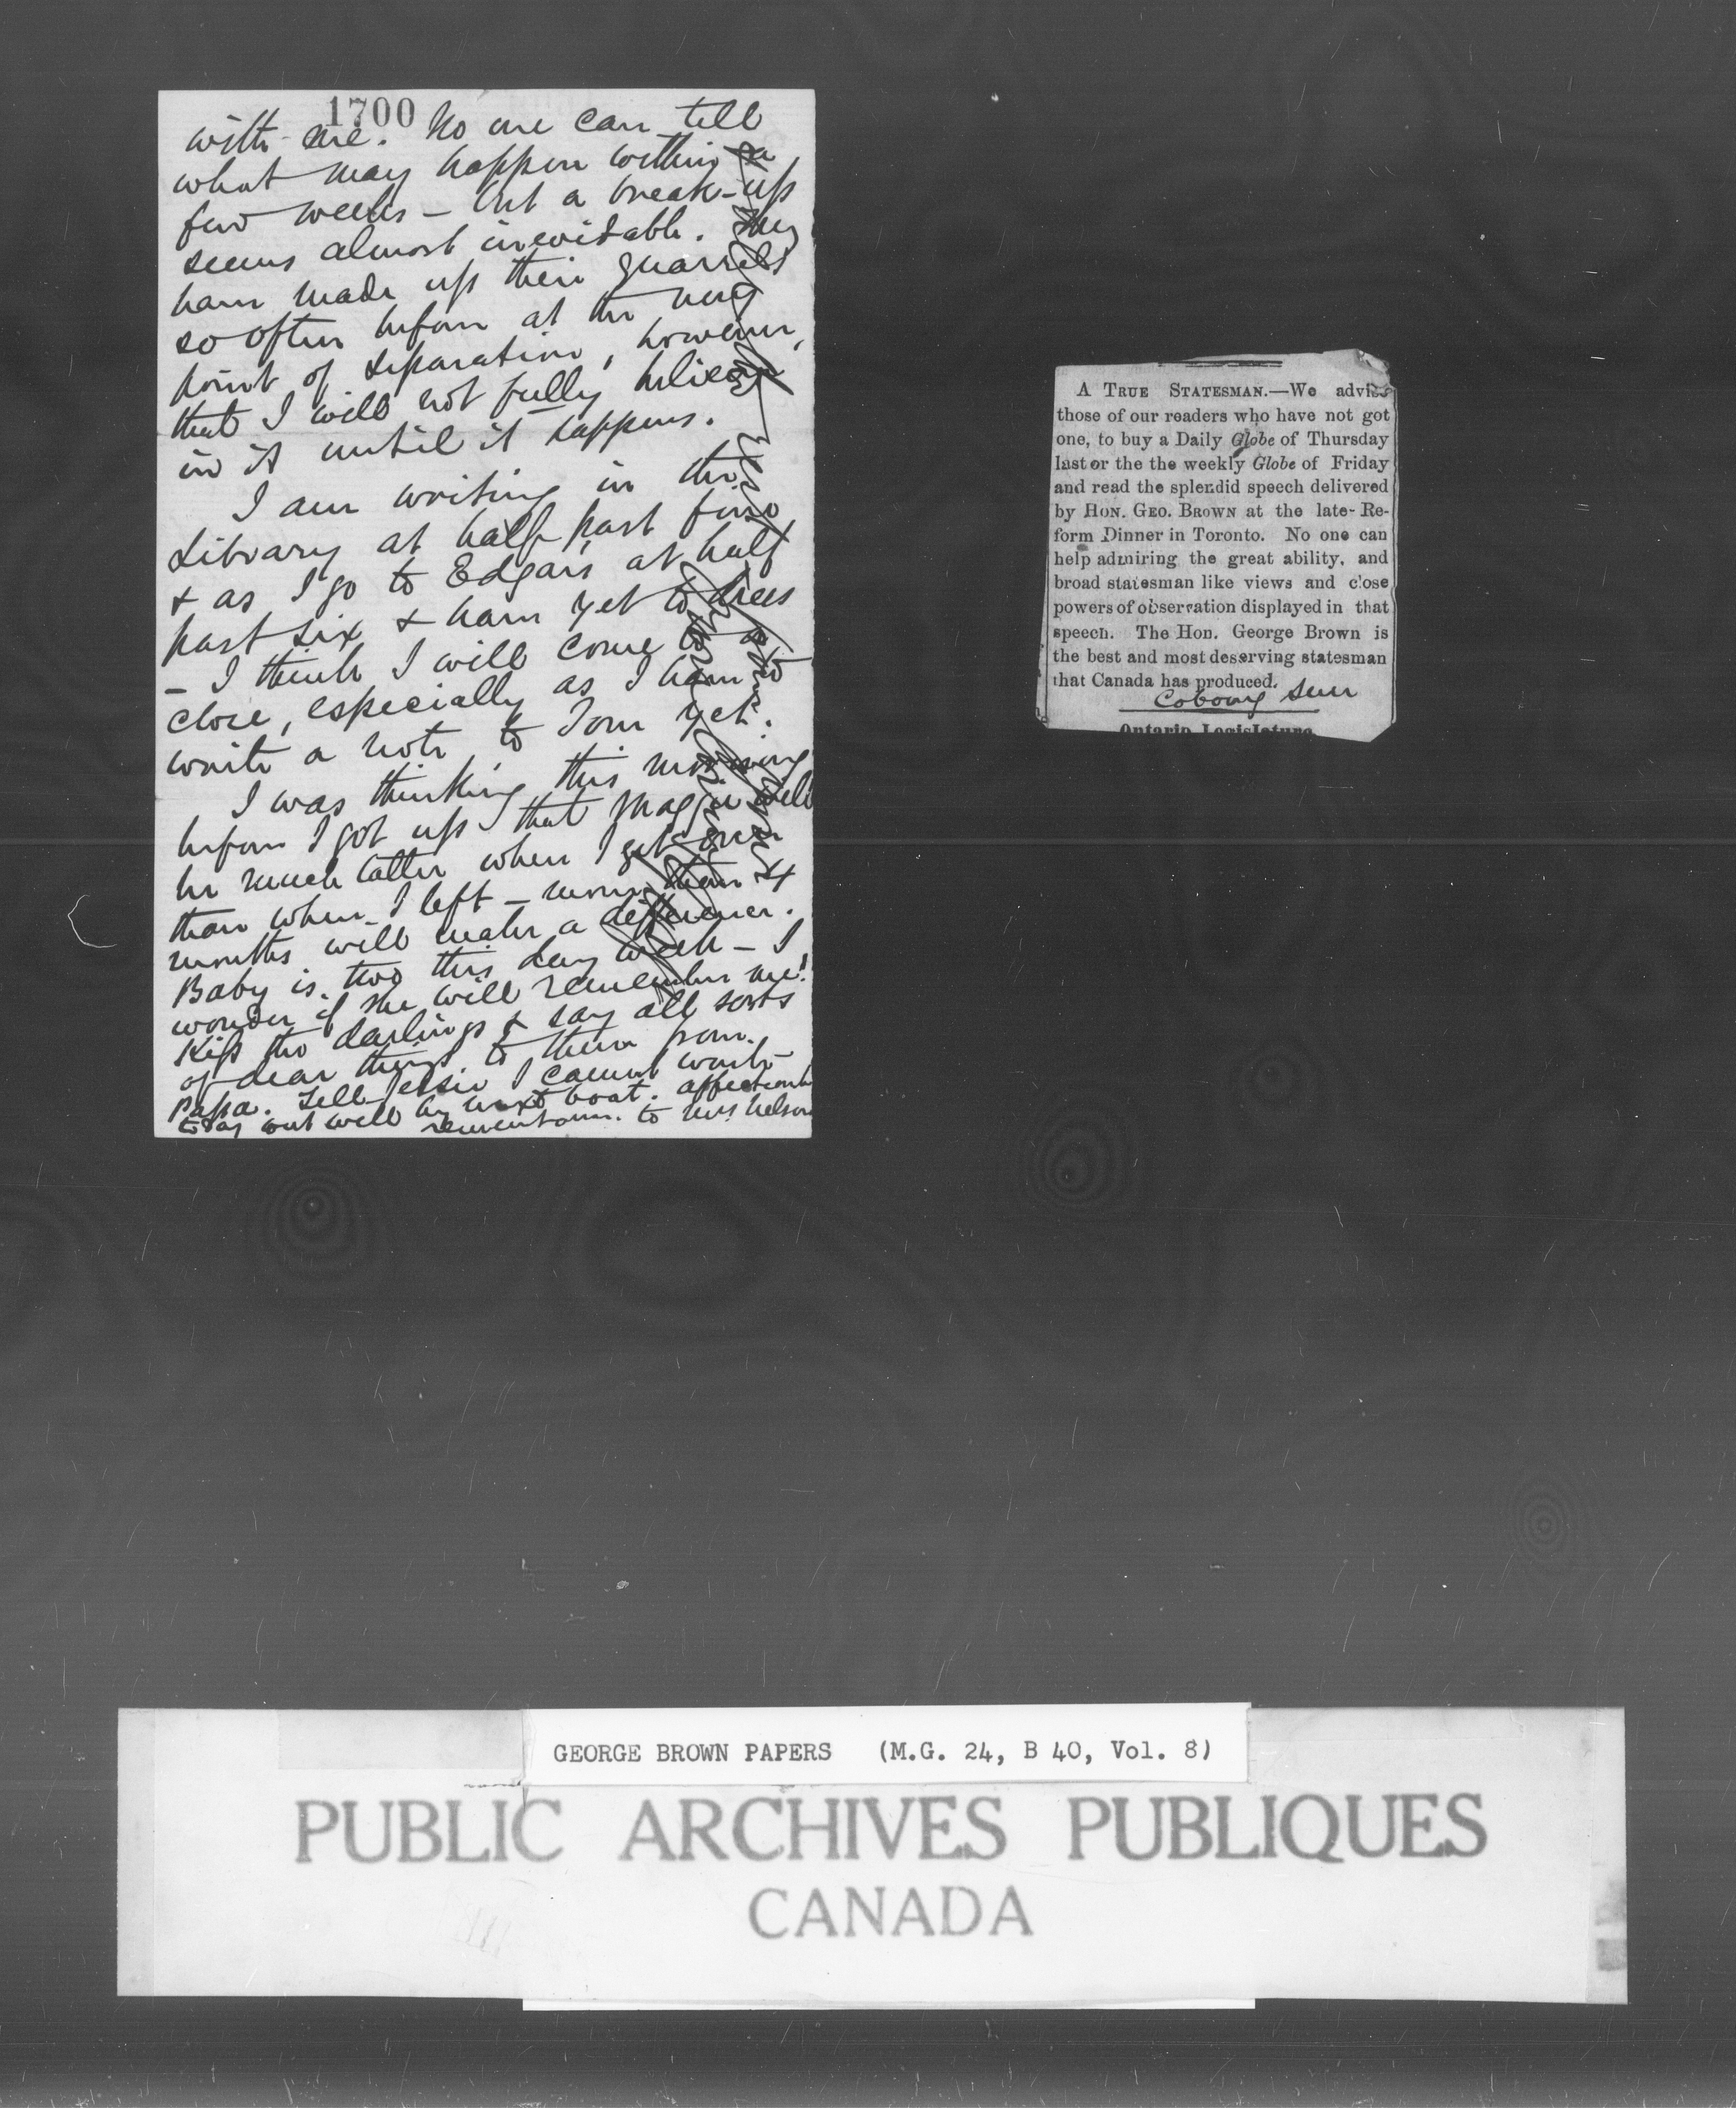 1700
with me. No one can tell
what may happen within a
few weeks – but a break-up
seems almost inevitable. They
have made up their quarrels
so often before at the very
point of separation, however,
that I will not fully believe
in it until it happens.
I am writing in the
Library at half past five
& as I go to Edgar's at half
past six & have yet to dress
– I think I will come to a
close, especially as I have to
write a note to Tom yet.
I was thinking this morning
before I got up that Maggie will
be much taller when I get over
than when I left – more than 4
months will make a difference.
Baby is two this day week – I
wonder if she will remember me!
Kiss the darlings & say all sorts
of dear things to them from
Papa. Tell Jessie I cannot write
today but will by next boat. affectionate
to Mrs Nelson
A TRUE STATESMAN.—We advise
those of our readers who have not got
one, to buy a Daily Globe of Thursday
last or the the weekly Globe of Friday
and read the splendid speech delivered
by HON. GEO. BROWN at the late Re-
form Dinner in Toronto. No one can
help admiring the great ability, and
broad statesman like views and close
powers of observation displayed in that
speech. The Hon. George Brown is
the best and most deserving statesman
that Canada has produced.
Cobourg Sun
Ontario Legislature
GEORGE BROWN PAPERS (M.G. 24, B 40, Vol. 8)
PUBLIC ARCHIVES PUBLIQUES
CANADA